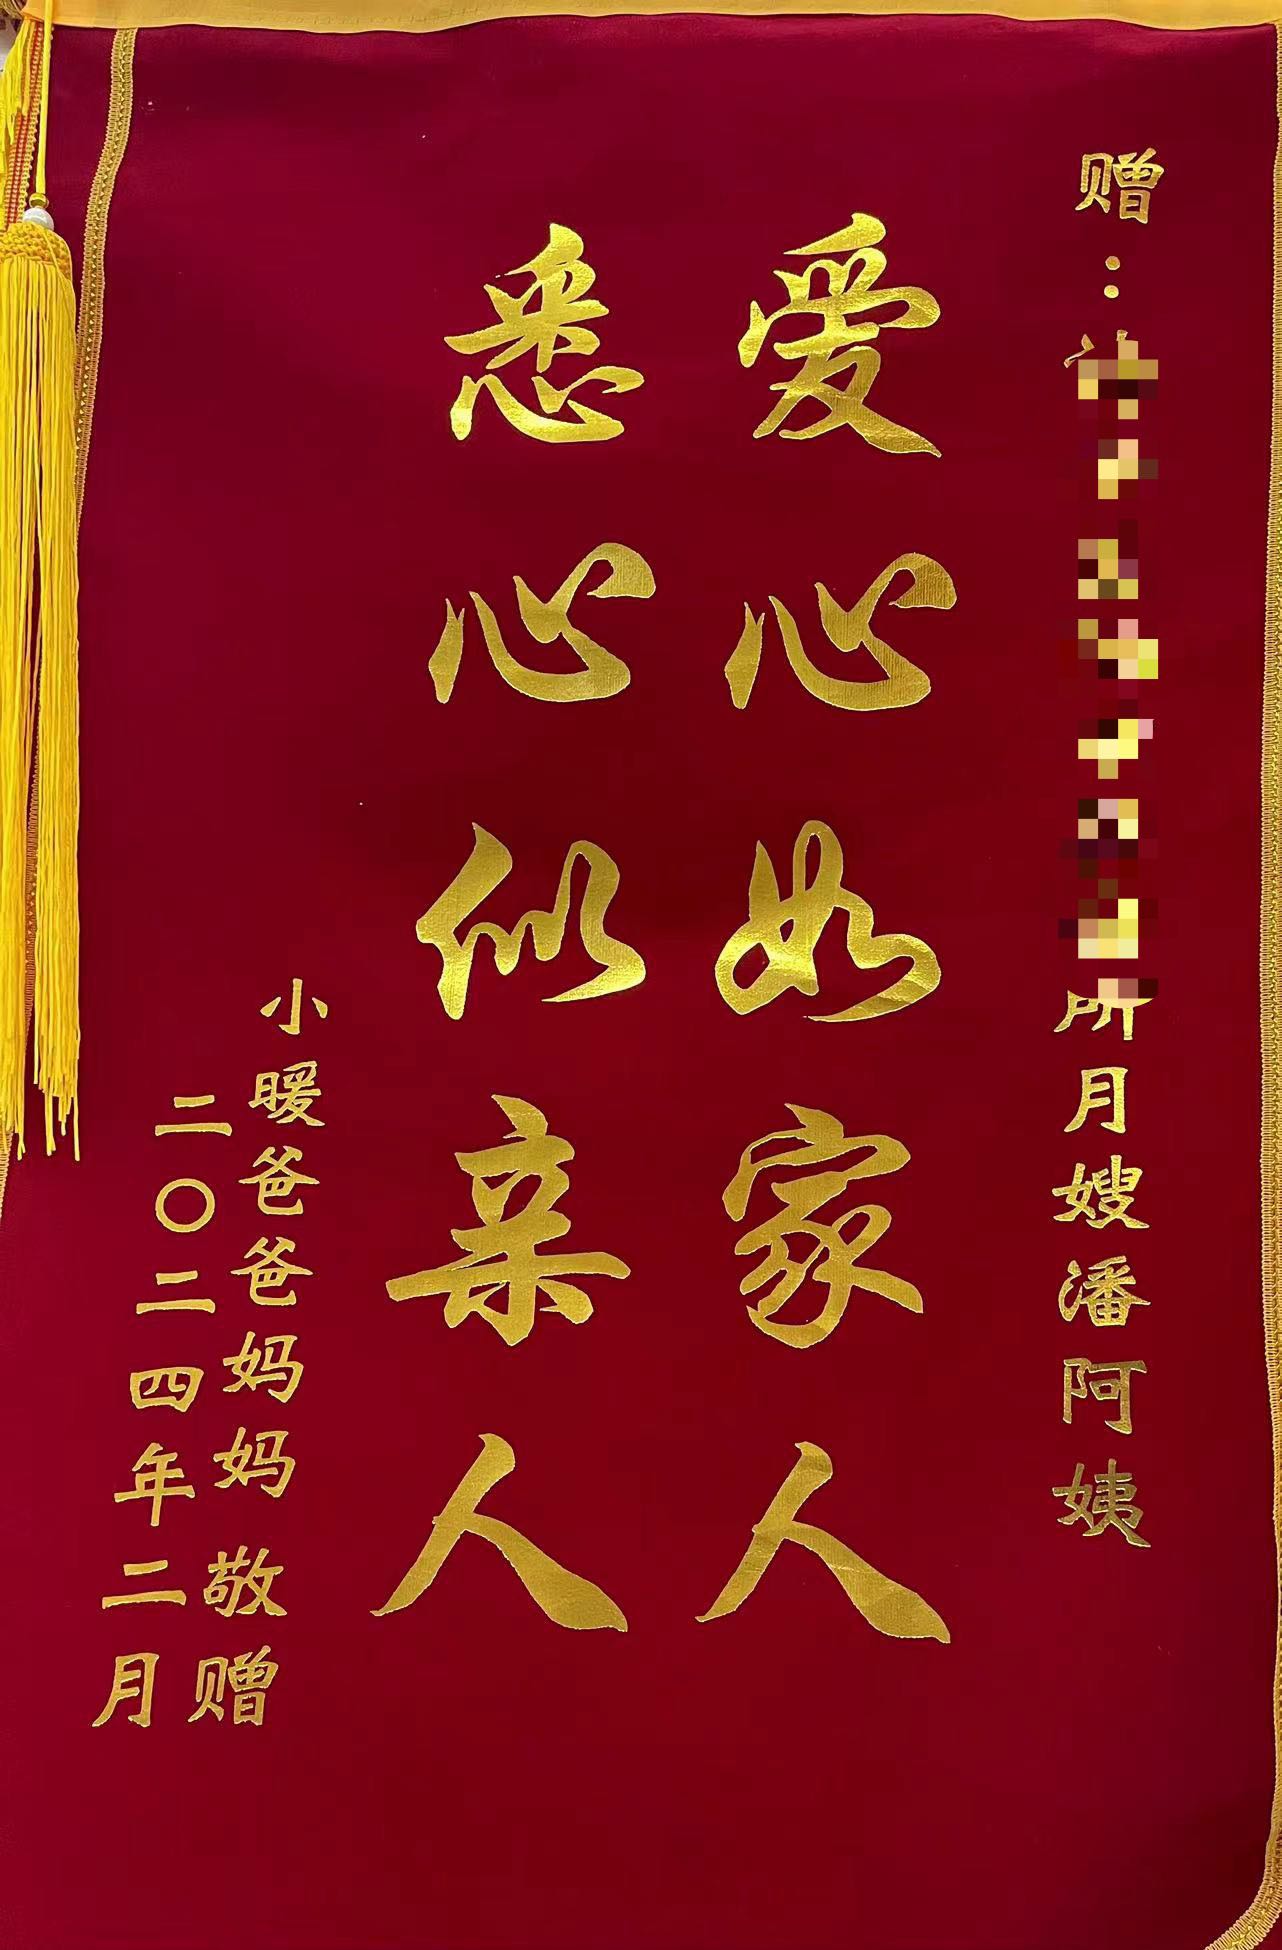 赠：
所月嫂潘阿姨
爱心如家人
悉心似亲人
小暖爸爸妈妈 敬赠
二〇二四年二月